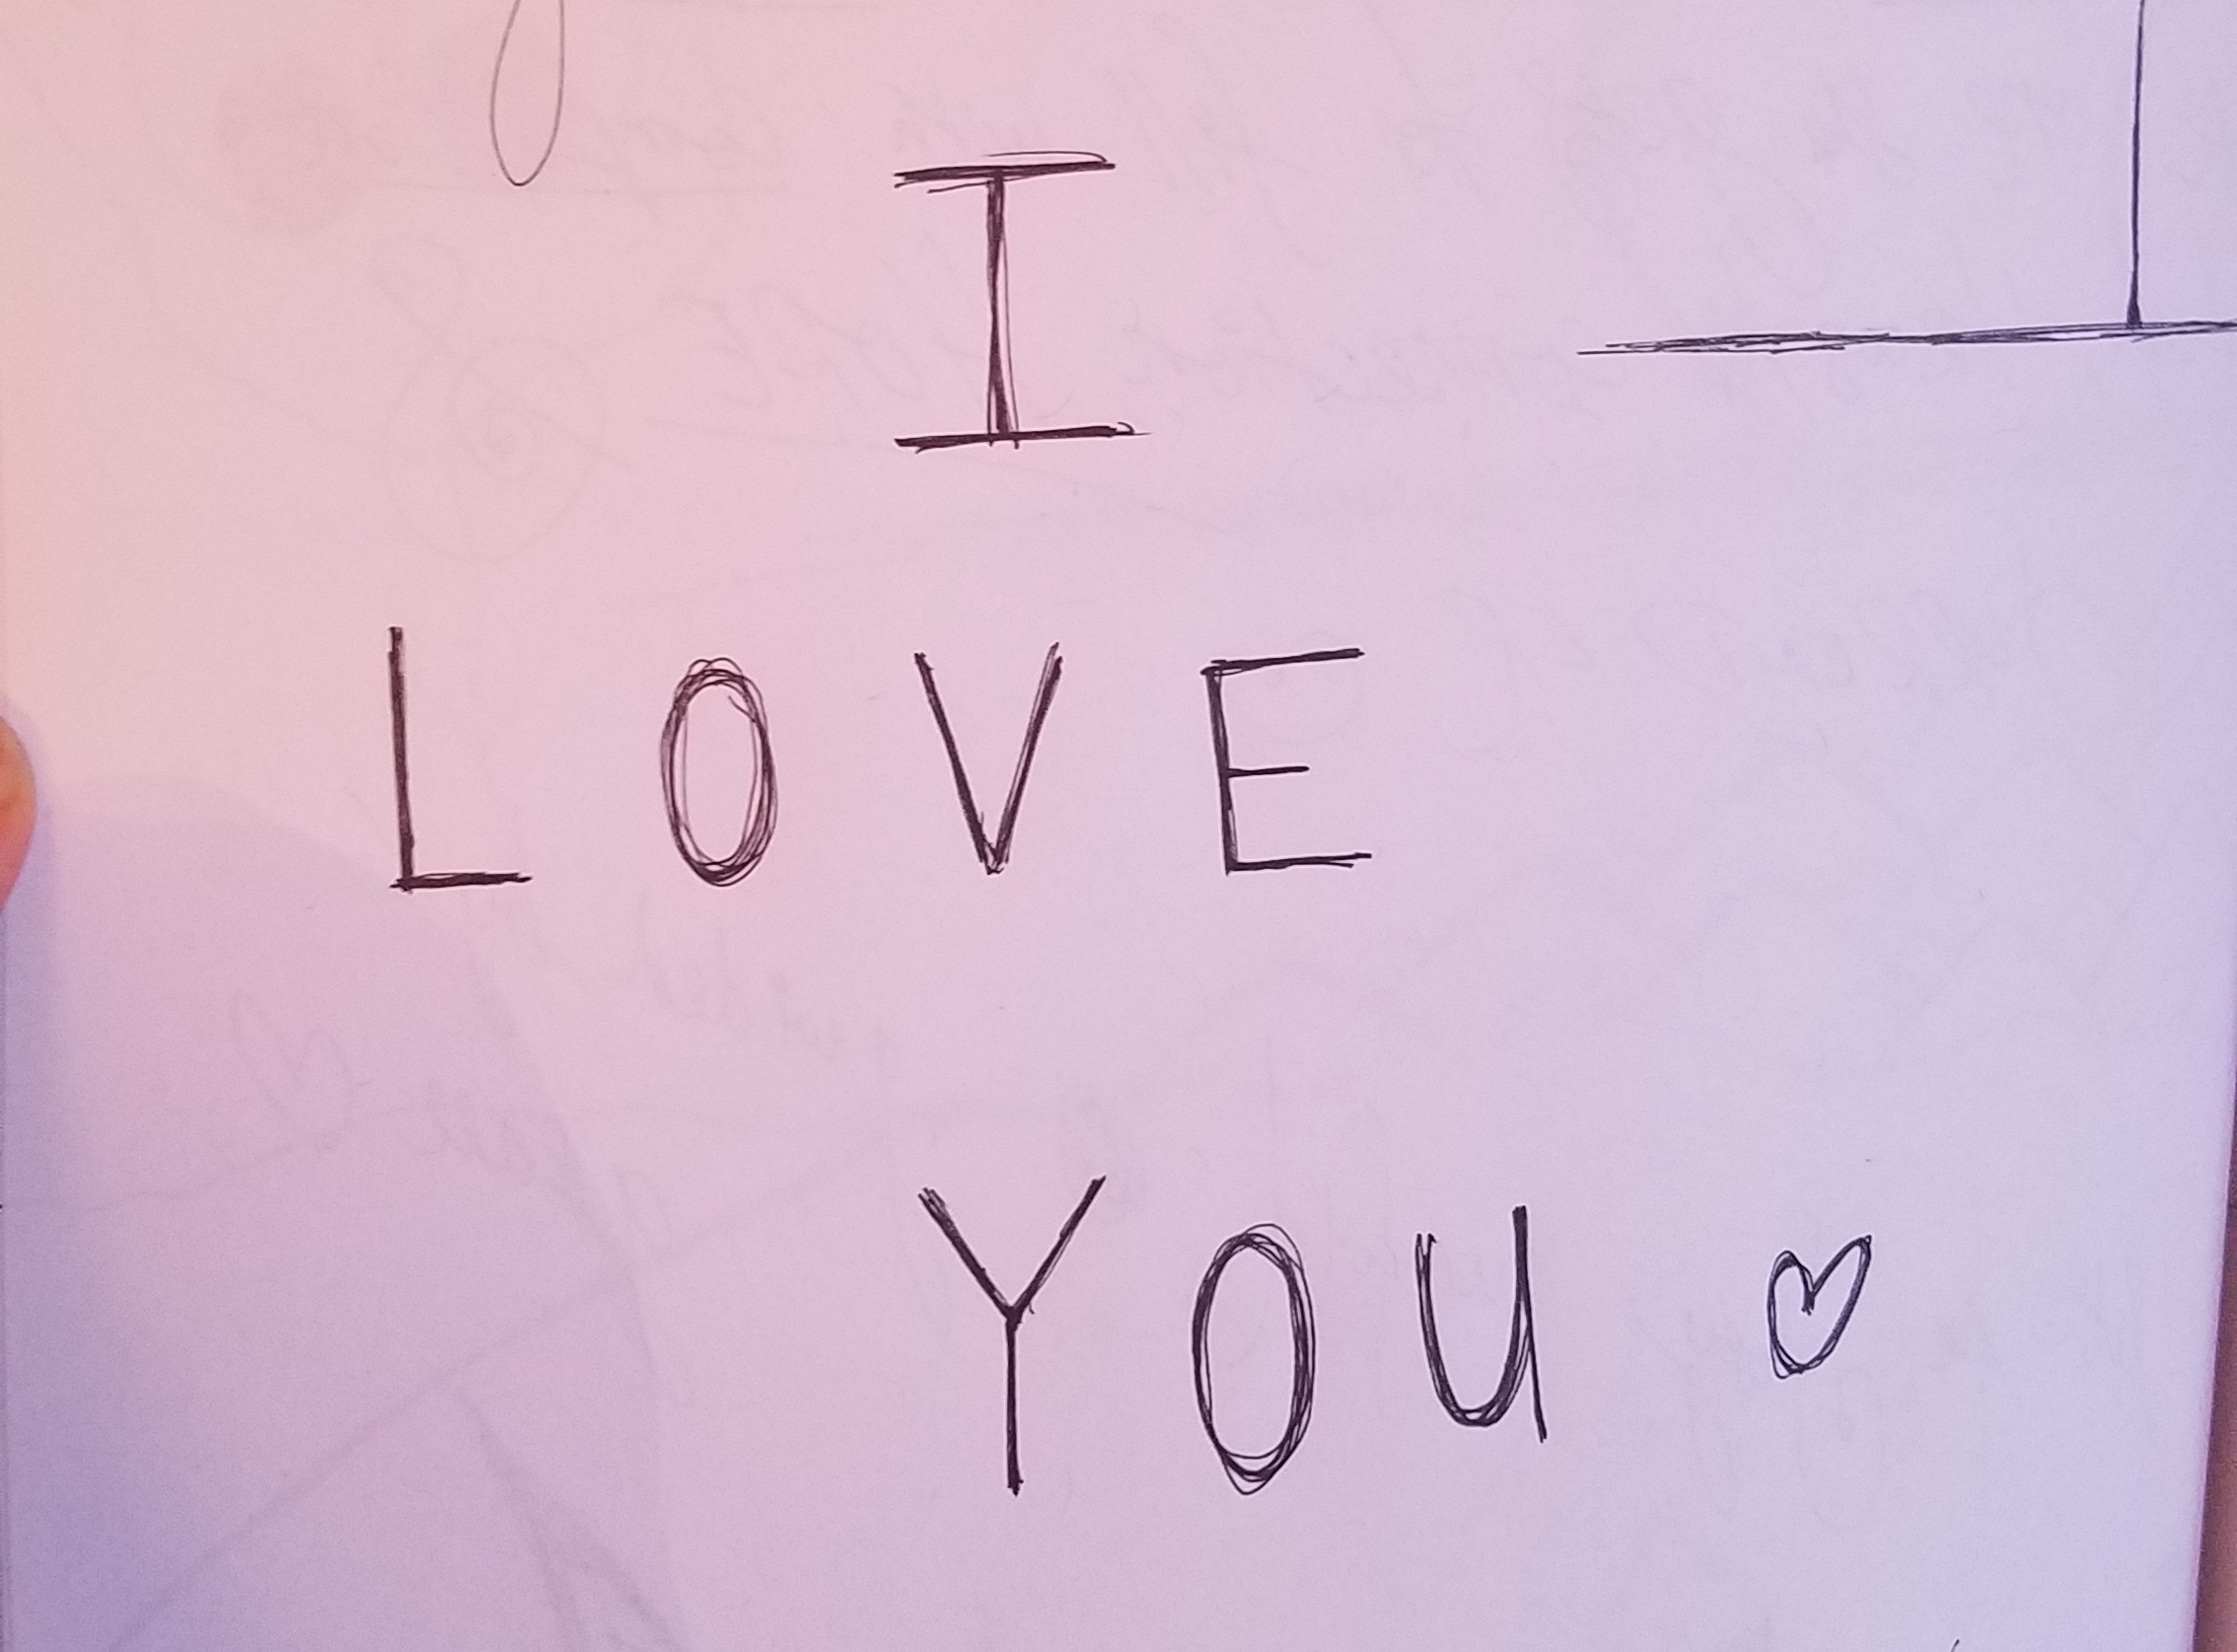 I
LOVE
YOU ♡